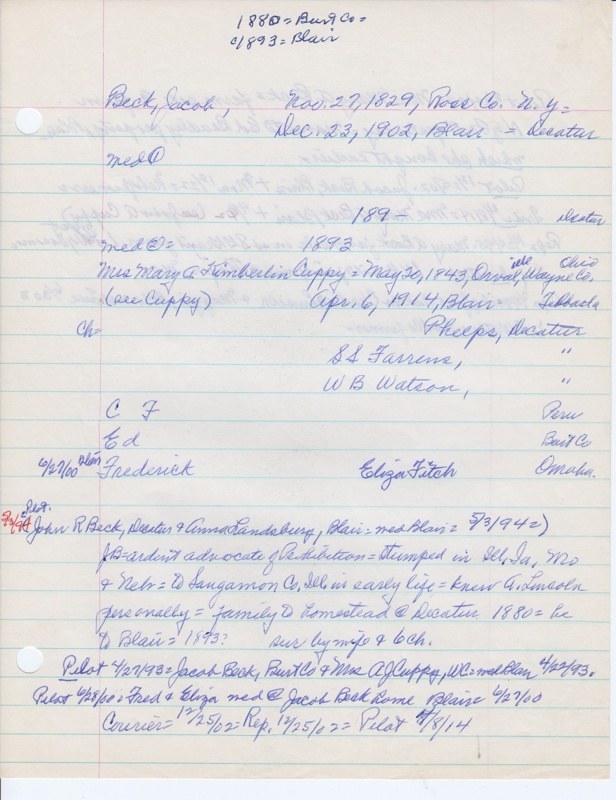 1880 = Burt Co =
c/1893 = Blair
Beck, Jacob, Nov. 27, 1829, Ross Co. N.Y =
Dec. 23, 1902, Blair = Decatur
med ①
189- Decatur
med ② = 1893
Mrs Mary A Kimberlin Cuppy = May 20, 1843, Orville, Wayne Co. Ohio
(see Cuppy) Apr. 6, 1914, Blair = Tekamah
ch = Phelps, Decatur
SS Farrens, "
W B Watson, "
C F Peru
Ed Burt Co
6/27/00 Blair Frederick Eliza Fitch Omaha.
Pilot
5/3/94 John R Beck, Decatur & Anna Landsburg, Blair = med Blair = 5/3/94 =)
JB = ardent advocate of Prohibition = Stumped in Ill, Ia, Mo
& Nebr = to Sangamon Co. Ill. in early life = knew A. Lincoln
personally = family to homestead @ Decatur 1880 = he
to Blair = 1893? sur by wife & 6 ch.
Pilot 4/27/93 = Jacob Beck, Burt Co & Mrs A J Cuppy, WC = med Blair 4/22/93.
Pilot 6/28/00 = Fred & Eliza med @ Jacob Beck home Blair = 6/27/00
Courier = 12/25/02 = Rep. 12/25/02 = Pilot 4/8/14